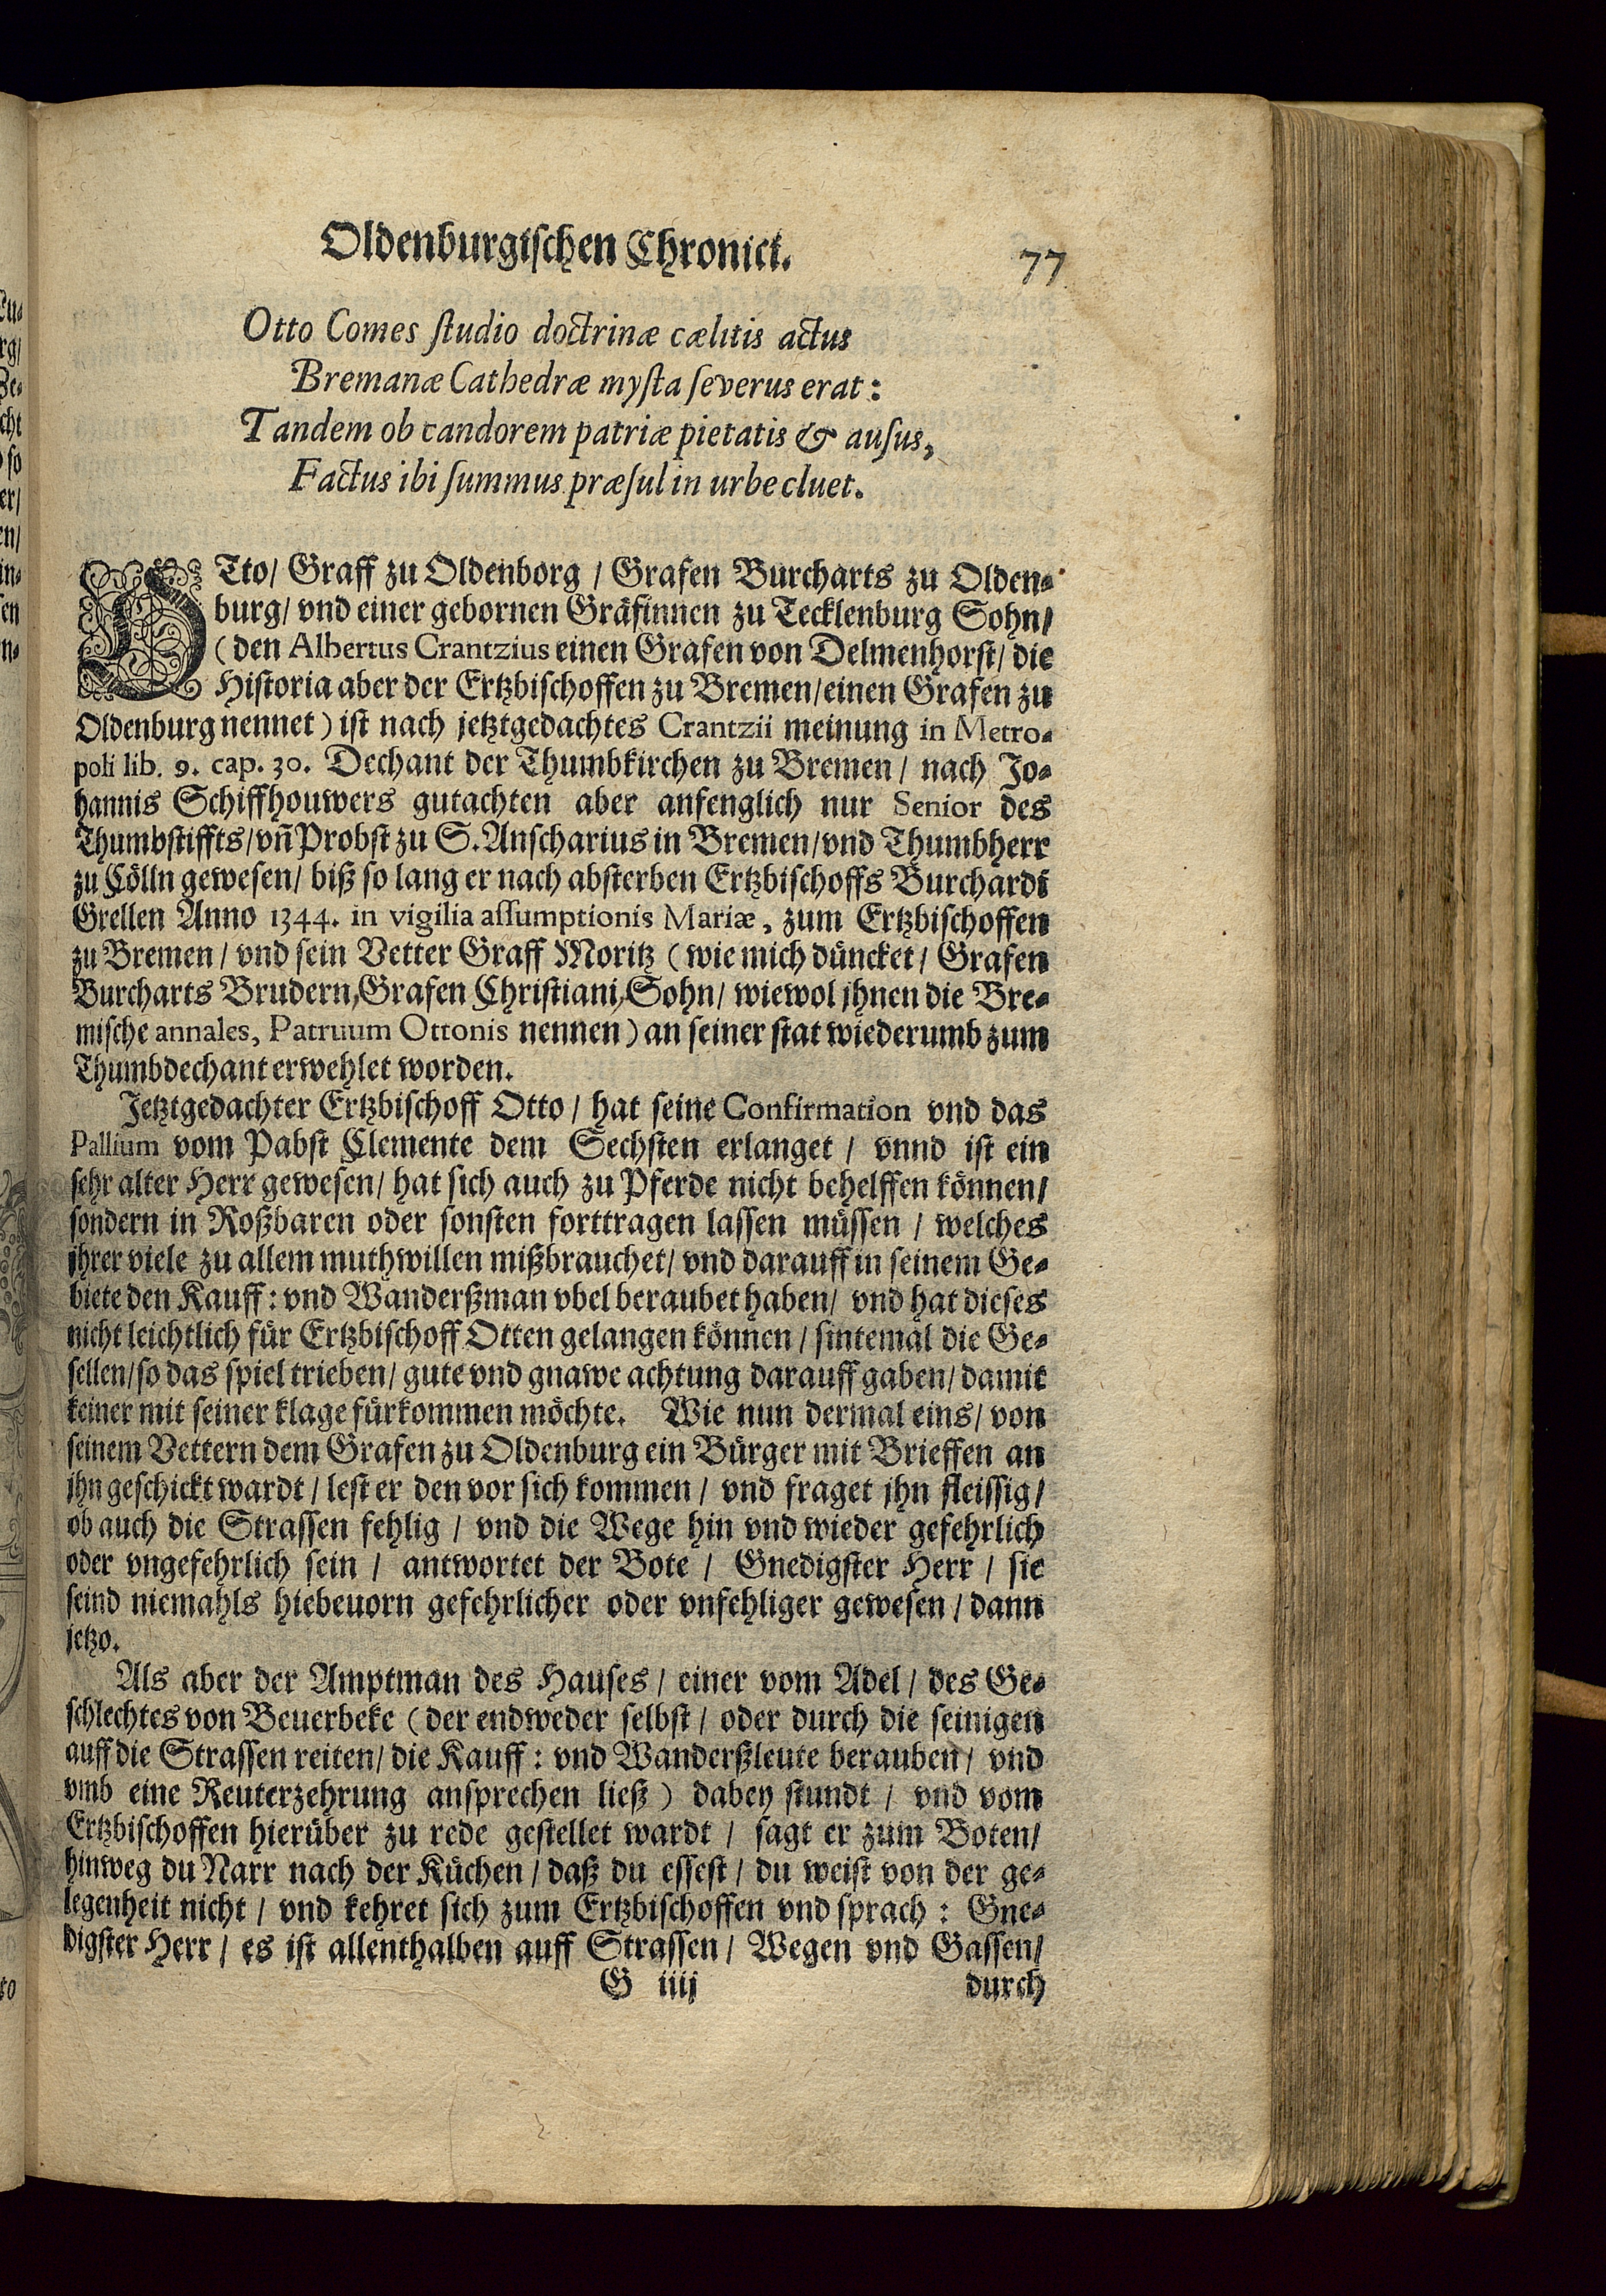 Oldenburgischen Chronici. 77
Otto Comes ſtudio doctrinæ cælitis actus
Bremanæ Cathedræ myſta ſeverus erat:
Tandem ob candorem patriæ pietatis & auſus,
Factus ibi ſummus præſul in urbe cluet.
OTto/ Graff zu Oldenborg / Grafen Burcharts zu Olden-
burg/ vnd einer gebornen Gräfinnen zu Tecklenburg Sohn/
(den Albertus Crantzius einen Grafen von Delmenhorst/ die
Historia aber der Ertzbischoffen zu Bremen/einen Grafen zu
Oldenburg nennet) ist nach jetztgedachtes Crantzii meinung in Metro-
poli lib. 9. cap. 30. Dechant der Thumbkirchen zu Bremen / nach Jo-
hannis Schiffhouwers gutachten aber anfenglich nur Senior des
Thumbstiffts/vn̄ Probst zu S. Anscharius in Bremen/vnd Thumbherr
zu Cölln gewesen/ biß so lang er nach absterben Ertzbischoffs Burchardi
Grellen Anno 1344. in vigilia aſſumptionis Mariæ, zum Ertzbischoffen
zu Bremen / vnd sein Vetter Graff Moritz (wie mich düncket / Grafen
Burcharts Brudern, Grafen Christiani, Sohn/ wiewol jhnen die Bre-
mische annales, Patruum Ottonis nennen) an seiner stat wiederumb zum
Thumbdechant erwehlet worden.
Jetztgedachter Ertzbischoff Otto / hat seine Confirmation vnd das
Pallium vom Pabst Clemente dem Sechsten erlanget / vnnd ist ein
sehr alter Herr gewesen/ hat sich auch zu Pferde nicht behelffen können/
sondern in Roßbaren oder sonsten forttragen lassen müssen / welches
jhrer viele zu allem muthwillen mißbrauchet/ vnd darauff in seinem Ge-
biete den Kauff: vnd Wanderßman vbel beraubet haben/ vnd hat dieses
nicht leichtlich für Ertzbischoff Otten gelangen können / sintemal die Ge-
sellen/so das spiel trieben/ gute vnd gnawe achtung darauff gaben/ damit
keiner mit seiner klage fürkommen möchte. Wie nun dermal eins/ von
seinem Vettern dem Grafen zu Oldenburg ein Bürger mit Brieffen an
jhn geschickt wardt / lest er den vor sich kommen / vnd fraget jhn fleissig/
ob auch die Strassen fehlig / vnd die Wege hin vnd wieder gefehrlich
oder vngefehrlich sein / antwortet der Bote / Gnedigster Herr / sie
seind niemahls hiebeuorn gefehrlicher oder vnfehliger gewesen / dann
jetzo.
Als aber der Amptman des Hauses / einer vom Adel / des Ge-
schlechtes von Beuerbeke (der endweder selbst / oder durch die seinigen
auff die Strassen reiten/ die Kauff: vnd Wanderßleute berauben/ vnd
vmb eine Reuterzehrung ansprechen ließ) dabey stundt / vnd vom
Ertzbischoffen hierüber zu rede gestellet wardt / sagt er zum Boten/
hinweg du Narr nach der Küchen / daß du essest / du weist von der ge-
legenheit nicht / vnd kehret sich zum Ertzbischoffen vnd sprach : Gne-
digster Herr / es ist allenthalben auff Strassen / Wegen vnd Gassen/
G iiij durch